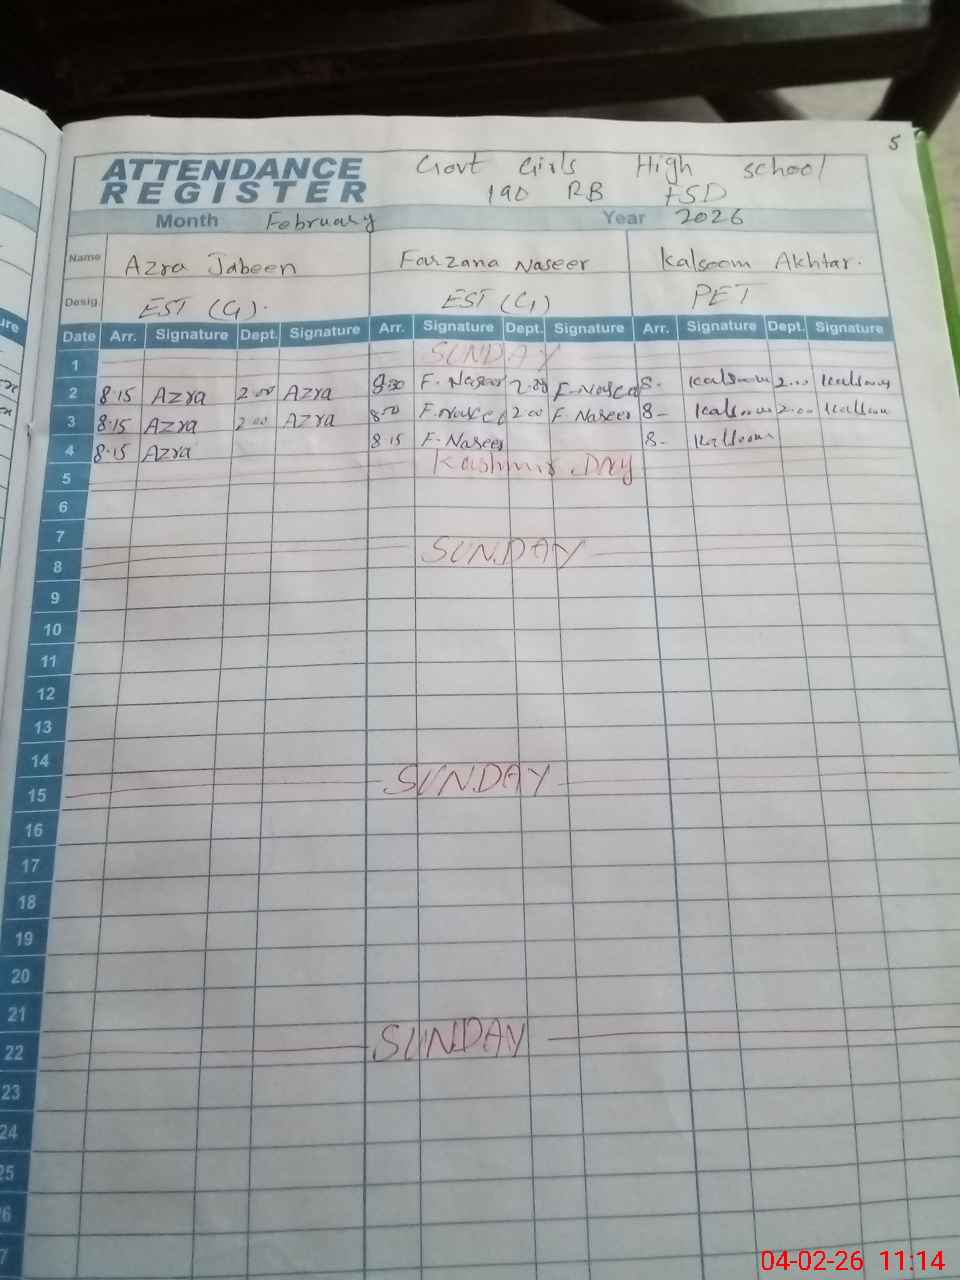 5
ATTENDANCE REGISTER
Govt Girls High school
190 RB FSD
Month February Year 2026
Name Azra Jabeen Farzana Naseer Kalsoom Akhtar.
Desig. EST (G). EST (G) PET
Date Arr. Signature Dept. Signature Arr. Signature Dept. Signature Arr. Signature Dept. Signature
1 SUNDAY
2 8.15 Azra 2.00 Azra F. Naseer F. Naseer 8- Kalsoom 2... Kalsoom
3 8.15 Azra 2.00 Azra F. Naseer 2.00 F. Naseer 8- Kalsoom 2.00 Kalsoom
4 8.15 Azra 8.15 F. Naseer 8- Kalsoom
5 Kashmir Day
6
7
8 SUNDAY
9
10
11
12
13
14
15 SUNDAY
16
17
18
19
20
21
22 SUNDAY
23
24
25
6
7
04-02-26 11:14